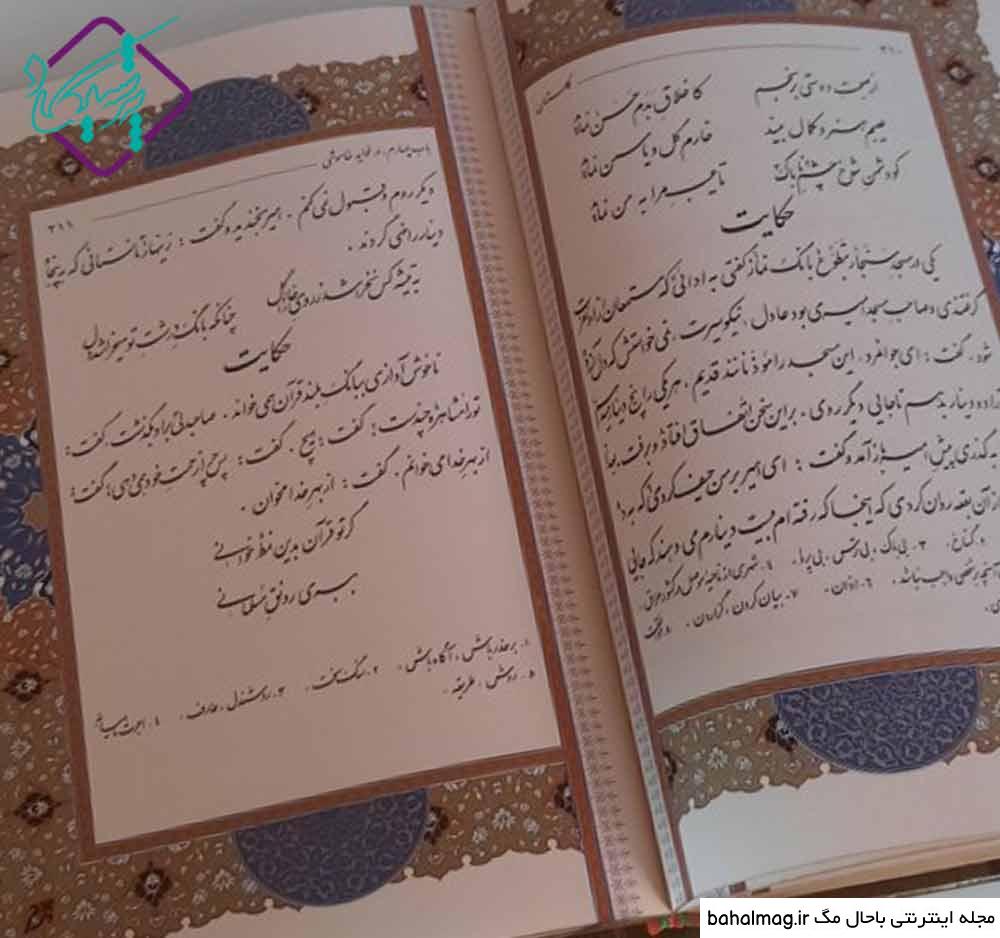 ۳۱۰
گلستان
از صحبت دوستی برنجم
کاخلاق بدم حسن نماید
عیبم هنر و کمال بیند
خارم گل و یاسمن نماید
کو دشمن شوخ چشم ناپاک
تا عیب مرا به من نماید
حکایت
یکی در مسجد سنجار بتطوع بانگ نماز گفتی به ادائی که مستمعان را از او نفرت
گرفتندی و صاحب مسجد امیری بود عادل، نیکو سیرت، نمی خواستش که دل آزرده
شود. گفت: ای جوانمرد، این مسجد را مؤذنانند قدیم، هر یکی را پنج دینار
ده دینار بدهم تا جایی دیگر روی، بر این سخن اتفاق افتاد و رفت.
گذری پیش امیر باز آمد و گفت: ای امیر بر من حیف کردی که به
از آن بقعه روان کردی که اینجا که رفته ام بیست دینارم می دهند که جایی
گستاخ. ۳- بی باک، بی ترس، بی پروا. ٤- شهری از ناحیه موصل در کشور عراق.
آنچه بر شخص واجب نباشد. ٦- اذان. ۷- بیان کردن، گزاردن. ۸-
باب چهارم، در فواید خاموشی
۳۱۱
دیگر روم و قبول نمی کنم. امیر بخندید و گفت: زینهار تا نستانی که به پنجاه
دینار راضی گردند.
به تیشه کس نخراشد ز روی خارا گل
چنانکه بانگ درشت تو میخراشد دل
حکایت
ناخوش آوازی ببانگ بلند قرآن همی خواند. صاحبدلی بر او بگذشت، گفت:
تو را مشاهره چندست؟ گفت: هیچ. گفت: پس چرا زحمت خود همی دهی؟ گفت:
از بهر خدا می خوانم. گفت: از بهر خدا مخوان.
گر تو قرآن بدین نمط خوانی
ببری رونق مسلمانی
۱- بر حذر باش، آگاه باش. ۲- سنگ سخت. ۳- روشندل، عارف. ٤- اجرت ماهیانه
۵- روش، طریقه.
مجله اینترنتی باحال مگ bahalmag.ir